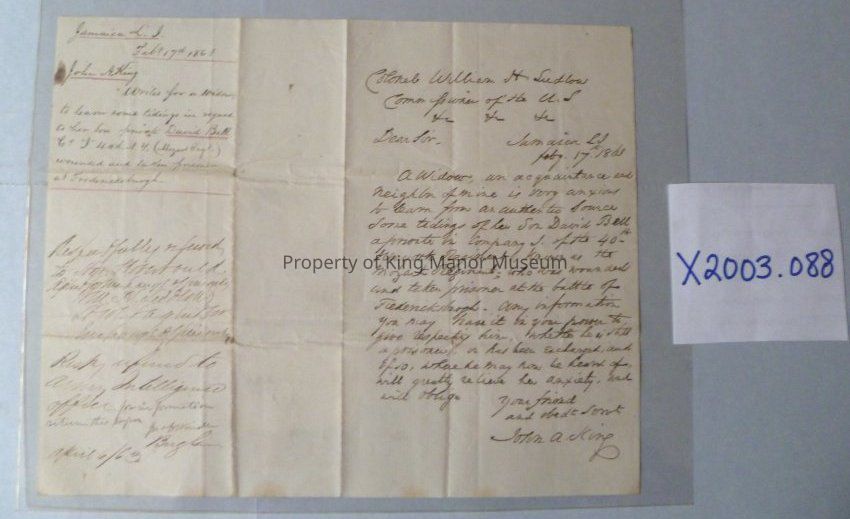 Jamaica L. I.
Feb. 17th 1863
John A King
Writes for a widow
to learn some tidings in regard
to her son private David Bell
Co I 40th N.Y. (Mozart Regt.)
wounded and taken prisoner
at Fredericksburgh.
Respectfully referred
to
Respy referred to
Army Intelligence
office for information
April 4/63
Colonel William H Ludlow
Commissioner of the U.S
&c &c &c
Dear Sir.
Jamaica LI
Feby. 17th 1863
A Widow, an acquaintance and
neighbr of mine is very anxious
to learn from an authentic Source
some tidings of her Son David Bell
a private in Company I. of the 40th
as the
Mozart Regiment, who was wounded
and taken prisoner at the battle of
Fredericksburgh. Any information
you may have it in your power to
give respecting him. whether he is still
a prisoner, or has been exchanged, and
if so, where he may now be heard of,
will greatly relieve her anxiety, and
will oblige
Your friend
and obedt Servt
John A King
Property of King Manor Museum
X2003.088